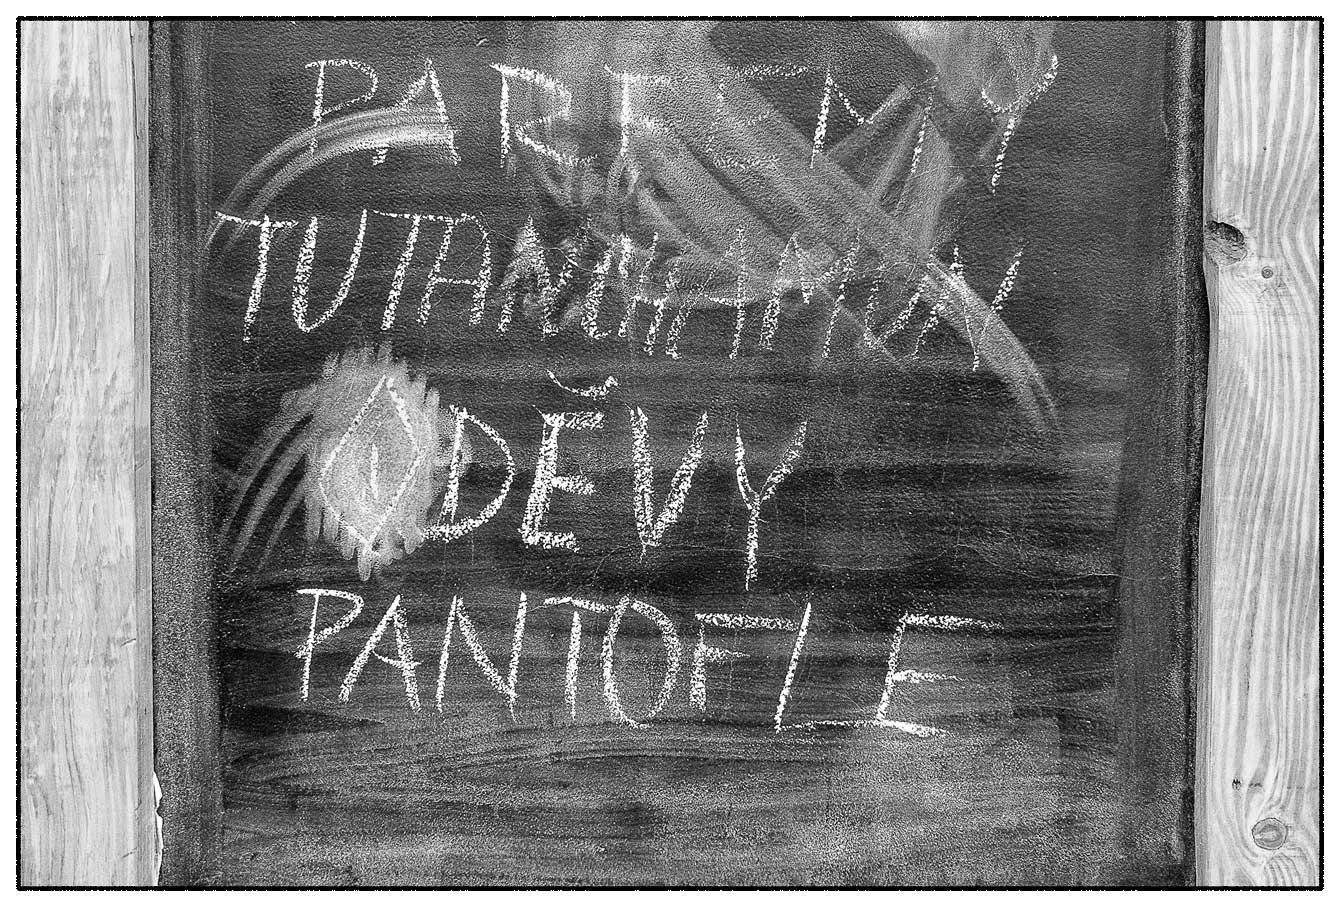 PARFEMY
TUTANCHAMUN
ODĚVY
PANTOFLE